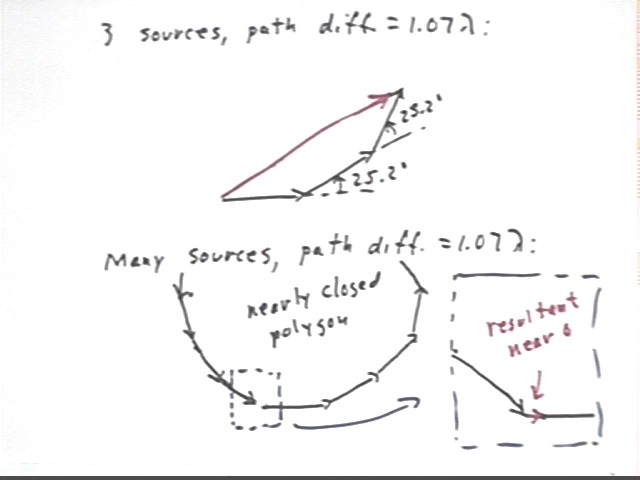 3 sources, path diff = 1.07λ:
25.2°
25.2°
Many sources, path diff. = 1.07λ:
nearly closed
polygon
resultant
near 0